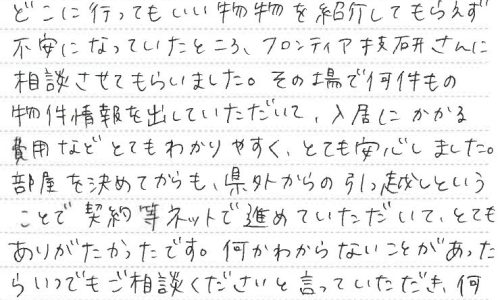 どこに行ってもいい物物を紹介してもらえず
不安になっていたところ、フロンティア技研さんに
相談させてもらいました。その場で何件もの
物件情報を出していただいて、入居にかかる
費用などとてもわかりやすく、とても安心しました。
部屋を決めてからも、県外からの引っ越しという
ことで契約等ネットで進めていただいて、とても
ありがたかったです。何かわからないことがあった
らいつでもご相談くださいと言っていただき、何